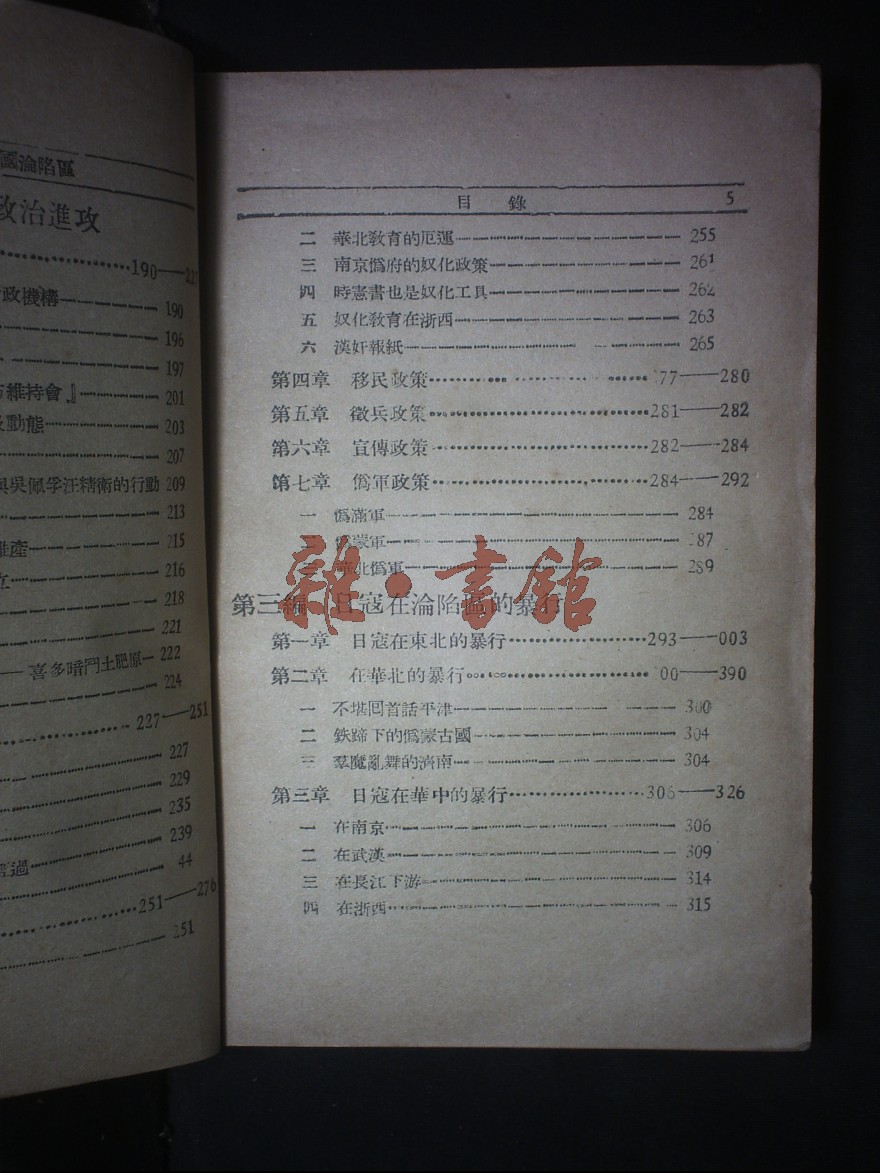 國淪陷區
政治進攻
190
政機構 190
196
197
維持會』 201
動態 203
207
與吳佩孚汪精衛的行動 209
213
產 215
立 216
218
221
喜多暗鬥土肥原 222
224
227——251
227
229
235
239
過 44
251——276
251
目錄 5
二 華北敎育的厄運 255
三 南京僞府的奴化政策 261
四 時憲書也是奴化工具 262
五 奴化敎育在浙西 263
六 漢奸報紙 265
第四章 移民政策 77——280
第五章 徵兵政策 281——282
第六章 宣傳政策 282——284
第七章 僞軍政策 284——292
一 僞滿軍 284
二 僞蒙軍 87
華北僞軍 289
雜·書館
第三編 日寇在淪陷區的暴行
第一章 日寇在東北的暴行 293——003
第二章 在華北的暴行 00——390
一 不堪回首話平津 300
二 鉄蹄下的僞蒙古國 304
三 羣魔亂舞的濟南 304
第三章 日寇在華中的暴行 306——326
一 在南京 306
二 在武漢 309
三 在長江下游 314
四 在浙西 315